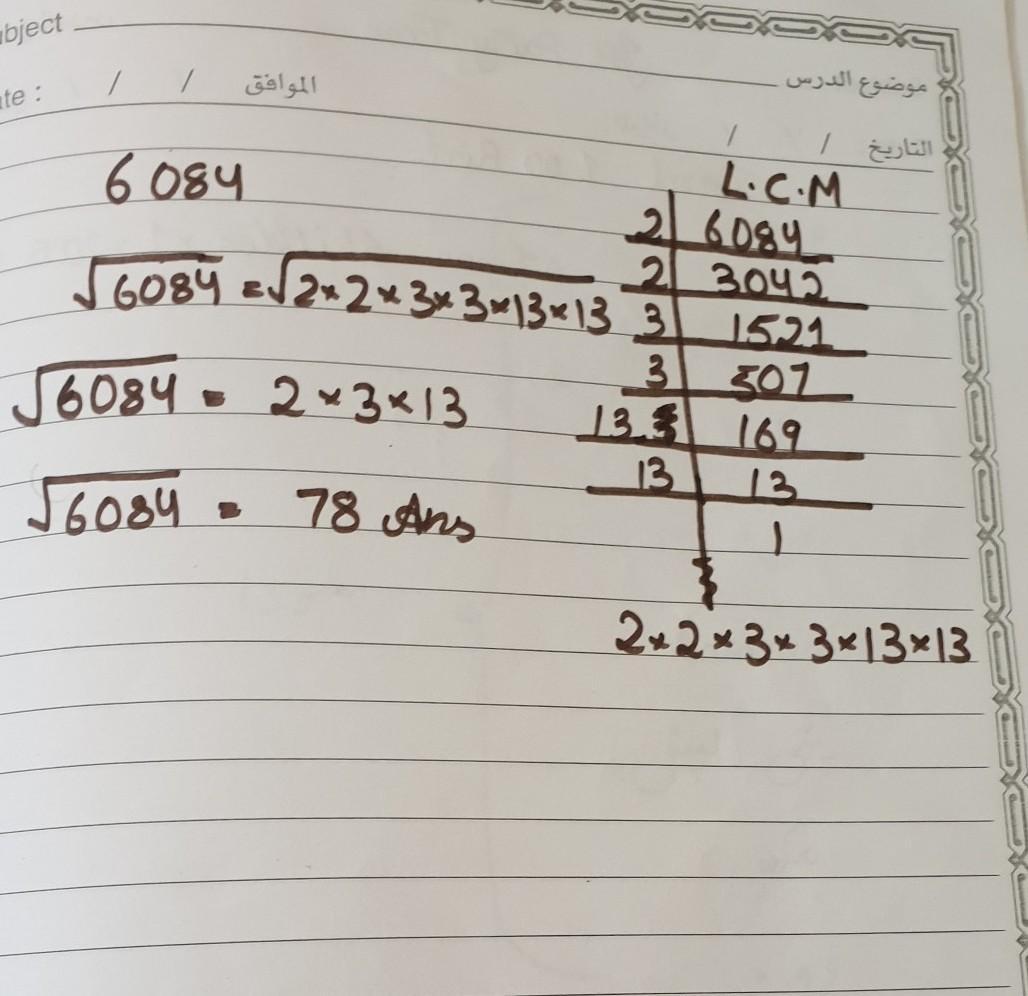 bject
موضوع الدرس
ate : / / الموافق
/ / التاريخ
6084
√6084 = √2×2×3×3×13×13
√6084 = 2×3×13
√6084 = 78 Ans
L.C.M
2 | 6084
2 | 3042
3 | 1521
3 | 507
13 | 169
13 | 13
1
2×2×3×3×13×13